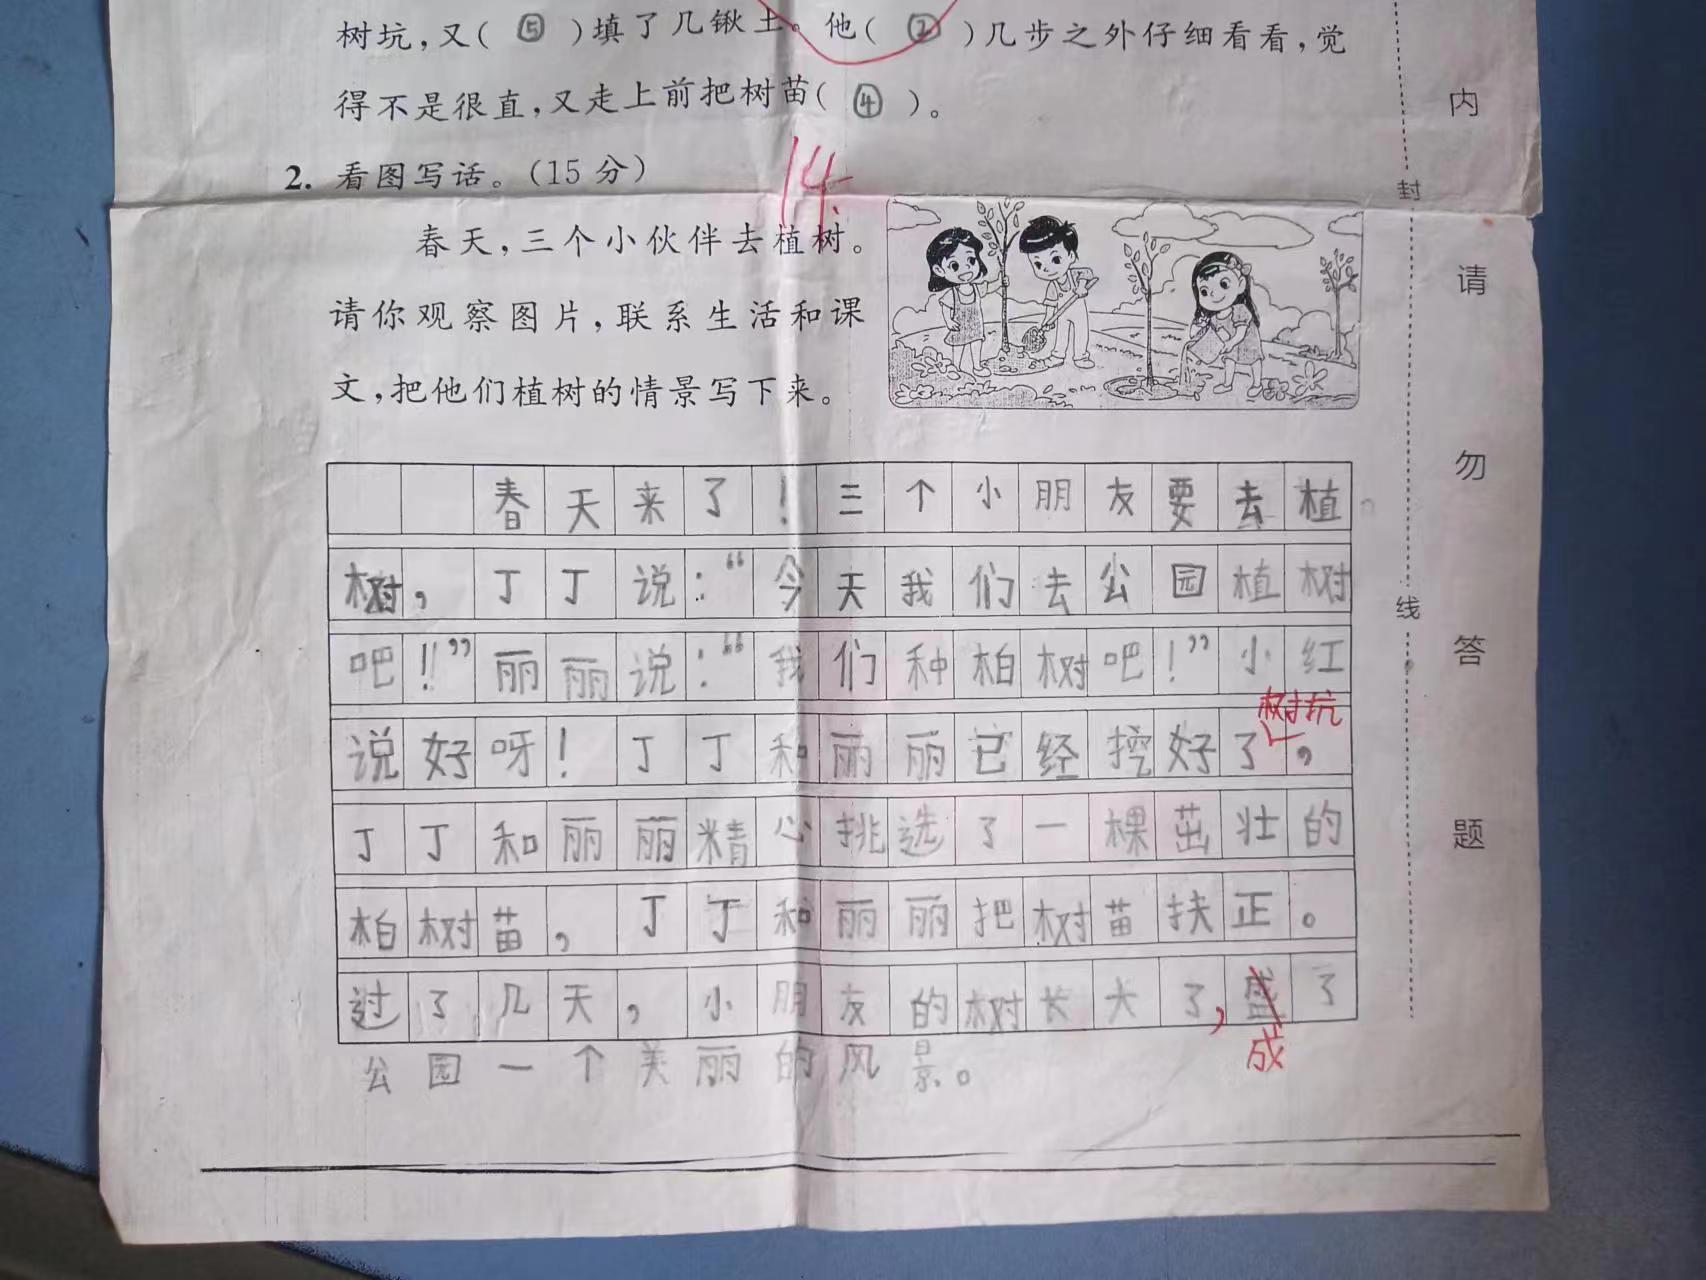 树坑，又( ⑤ )填了几锹土。他( ② )几步之外仔细看看，觉
得不是很直，又走上前把树苗( ④ )。
2. 看图写话。(15分)
14
春天，三个小伙伴去植树。
请你观察图片，联系生活和课
文，把他们植树的情景写下来。
春天来了！三个小朋友要去植
树，丁丁说：“今天我们去公园植树
吧！!”丽丽说：“我们种柏树吧！”小红
树坑
说好呀！丁丁和丽丽已经挖好了，
丁丁和丽丽精心挑选了一棵茁壮的
柏树苗，丁丁和丽丽把树苗扶正。
过了几天，小朋友的树长大了，盛了
成
公园一个美丽的风景。
内
封
请
勿
线
答
题